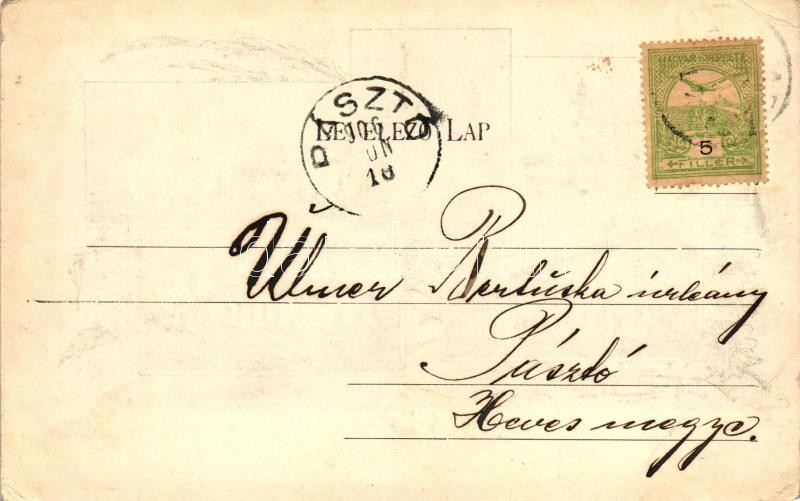 PÁSZTÓ
906
JUN
18
LEVELEZŐ LAP
MAGYAR KIR. POSTA
5
FILLÉR
Ulmer Bertuska úrleány
Pásztó
Heves megye.